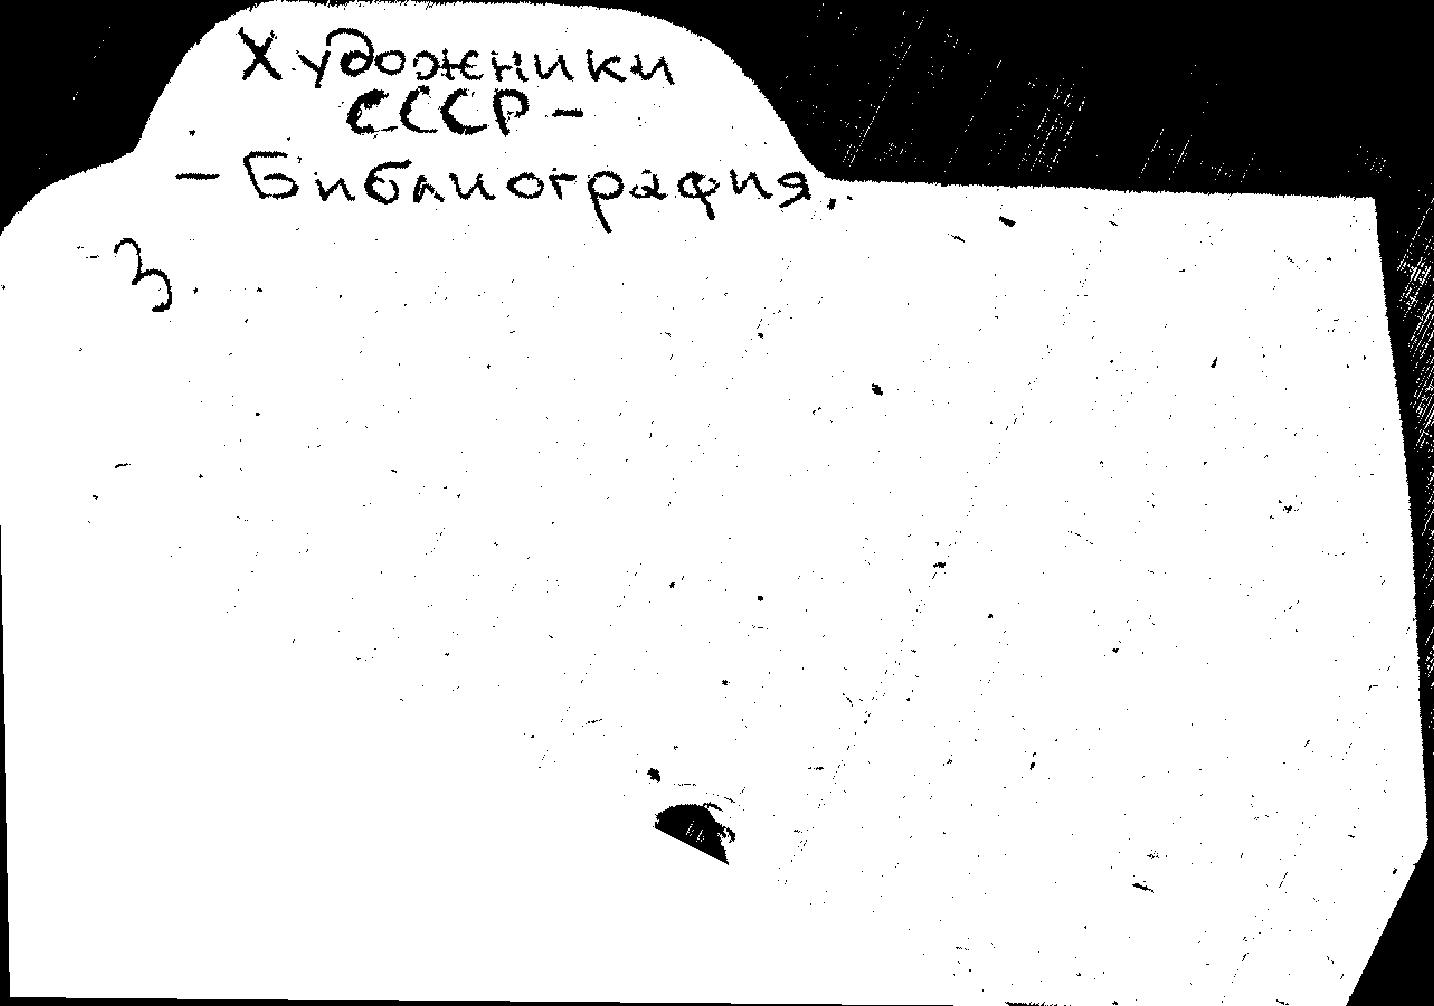 Художники
СССР -
- Библиография.
3